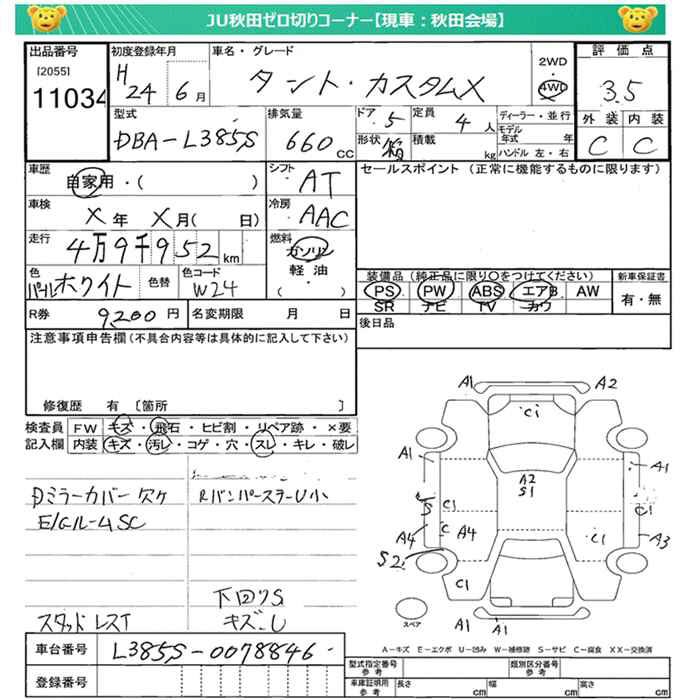 JU秋田ゼロ切りコーナー【現車：秋田会場】
出品番号 初度登録年月 車名・グレード 2WD・4WD 評価点
[2055]
11034
H24 6月 タント・カスタムX 3.5
型式 排気量 ドア 5 定員 4人 ディーラー・並行 外装 内装
DBA-L385S 660cc 形状 箱 積載 kg モデル年式 年 C C
ハンドル 左・右
車歴 自家用・( ) シフト AT セールスポイント (正常に機能するものに限ります)
車検 X年 X月( 日) 冷房 AAC
走行 4万9千952km 燃料 ガソリン
軽油
・( )
色 パールホワイト 色替 色コード W24 装備品(純正品に限り○をつけてください) 新車保証書
PS PW ABS エアB AW 有・無
SR ナビ TV カワ
R券 9,200円 名変期限 月 日 後日品
注意事項申告欄(不具合内容等は具体的に記入して下さい)
修復歴 有 〔箇所 〕
検査員記入欄 FW キズ・飛石・ヒビ割・リペア跡・×要
内装 キズ・汚レ・コゲ・穴・スレ・キレ・破レ
Dミラーカバー欠ケ RバンパーステーU小
E/Gルーム SC
下回りS
スタッドレスT キズ〜U
A1 A2
C1
A1 A2 S1 A1
S C1 C1
A4 C A4 C1 A3
S2
C1
A1 A1
スペア
A－キズ E－エクボ U－凹み W－補修跡 S－サビ C－腐食 XX－交換済
車台番号 L385S-0078846
型式指定番号 参考 類別区分番号 参考
登録番号 車庫証明用 参考 長さ cm 幅 cm 高さ cm